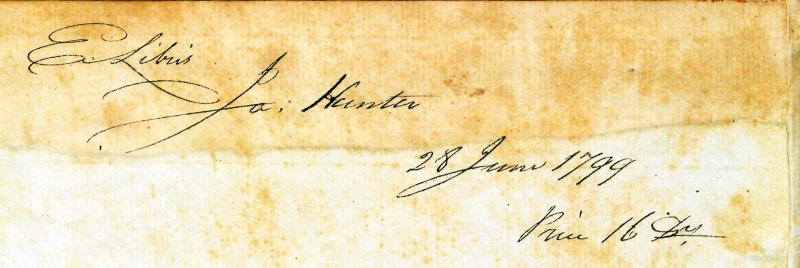 Ex Libris
Ja. Hunter
28 June 1799
Price 16